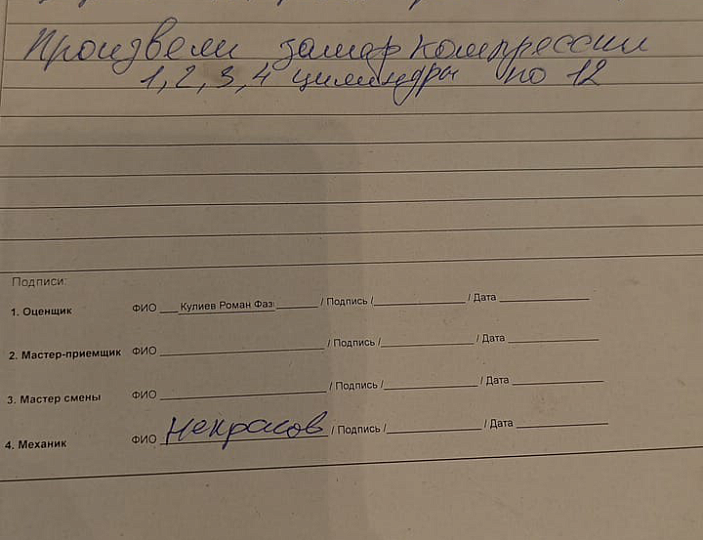 Произвели замер компрессии
1, 2, 3, 4 цилиндры по 12
Подписи:
1. Оценщик ФИО Кулиев Роман Фаз / Подпись / / Дата
2. Мастер-приемщик ФИО / Подпись / / Дата
3. Мастер смены ФИО / Подпись / / Дата
4. Механик ФИО Некрасов / Подпись / / Дата